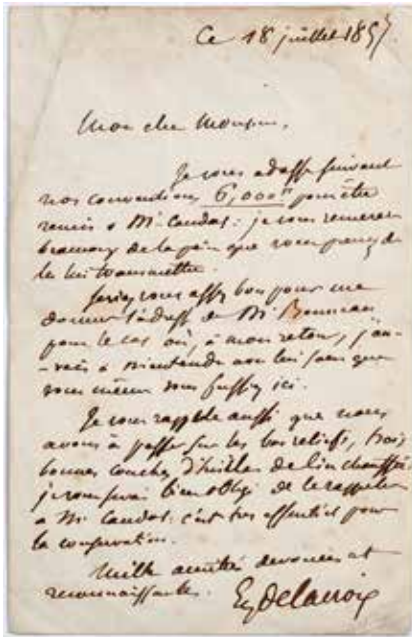 Ce 18 juillet 1857
Mon cher Monsieur,
Je vous adresse suivant
nos conventions 6,000 fr pour être
remis à Mr. Caudas : je vous remercie
beaucoup de la peine que vous prenez de
les lui transmettre.
Seriez vous assez bon pour me
donner l'adresse de Mr
pour le cas où, à mon retour, j'au-
-rais à m'entendre avec lui sans que
vous même vous fussiez ici.
Je vous rappelle aussi que nous
avons à passer sur les bas reliefs, trois
bonnes couches d'huile de lin chauffée
je vous serai bien obligé de le rappeler
à Mr. Caudas : c'est très essentiel pour
la conservation.
Mille amitiés dévouées et
reconnaissantes.
Eug Delacroix